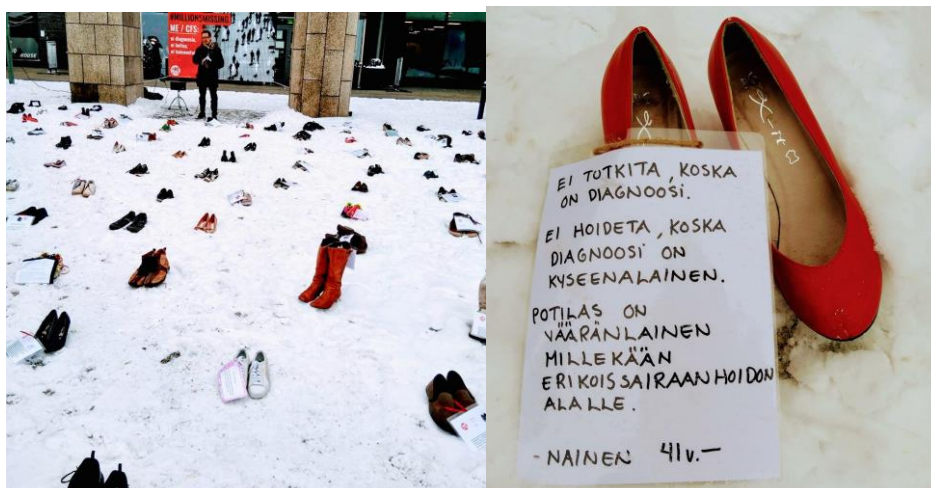 #MILLIONSMISSING
ME / CFS:
ei diagnoosia,
ei hoitoa,
EI TUTKITA, KOSKA
ON DIAGNOOSI.
EI HOIDETA, KOSKA
DIAGNOOSI ON
KYSEENALAINEN.
POTILAS ON
VÄÄRÄNLAINEN
MILLEKÄÄN
ERIKOISSAIRAANHOIDON
ALALLE.
- NAINEN 41v.-